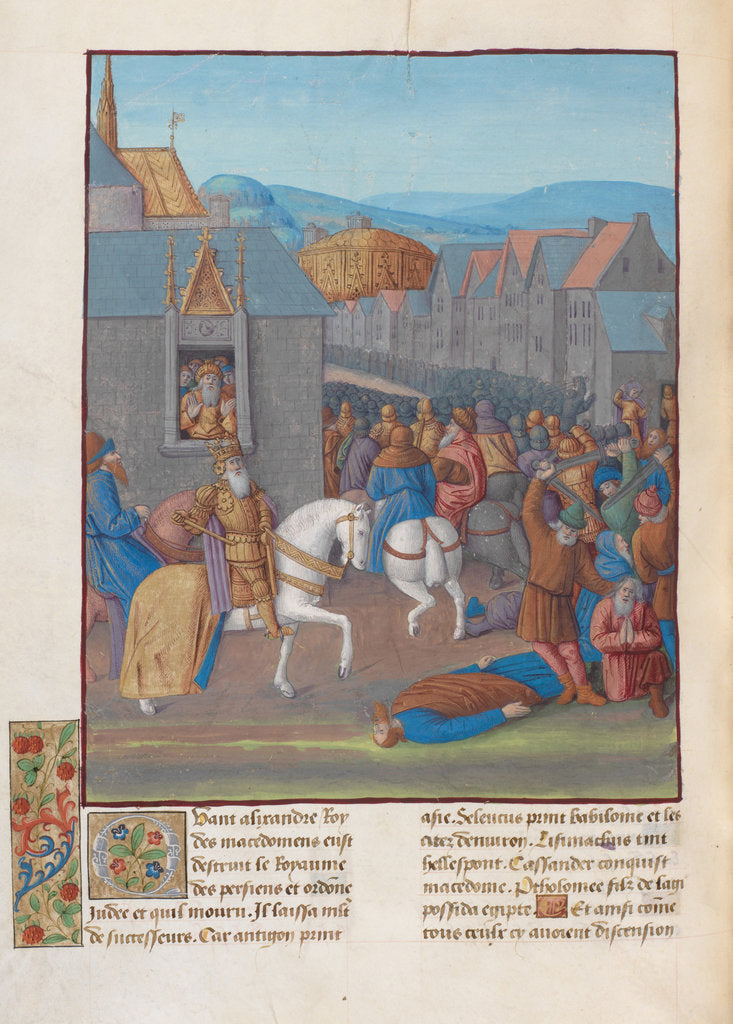 Quant alixandre Roy
des macedomens eust
destruit le Royaume
des persiens et ordõne
Judee et quil mourut. Il laissa
de successeurs. Car antigon print
asie. Seleucus print babilome et les
citez denuiron. Lisimachus tint
hellespont. Cassander conquist
macedome. Ptholomee filz de lagi
possida egipte. Et ainsi cõme
tous ceulx cy auoient discension